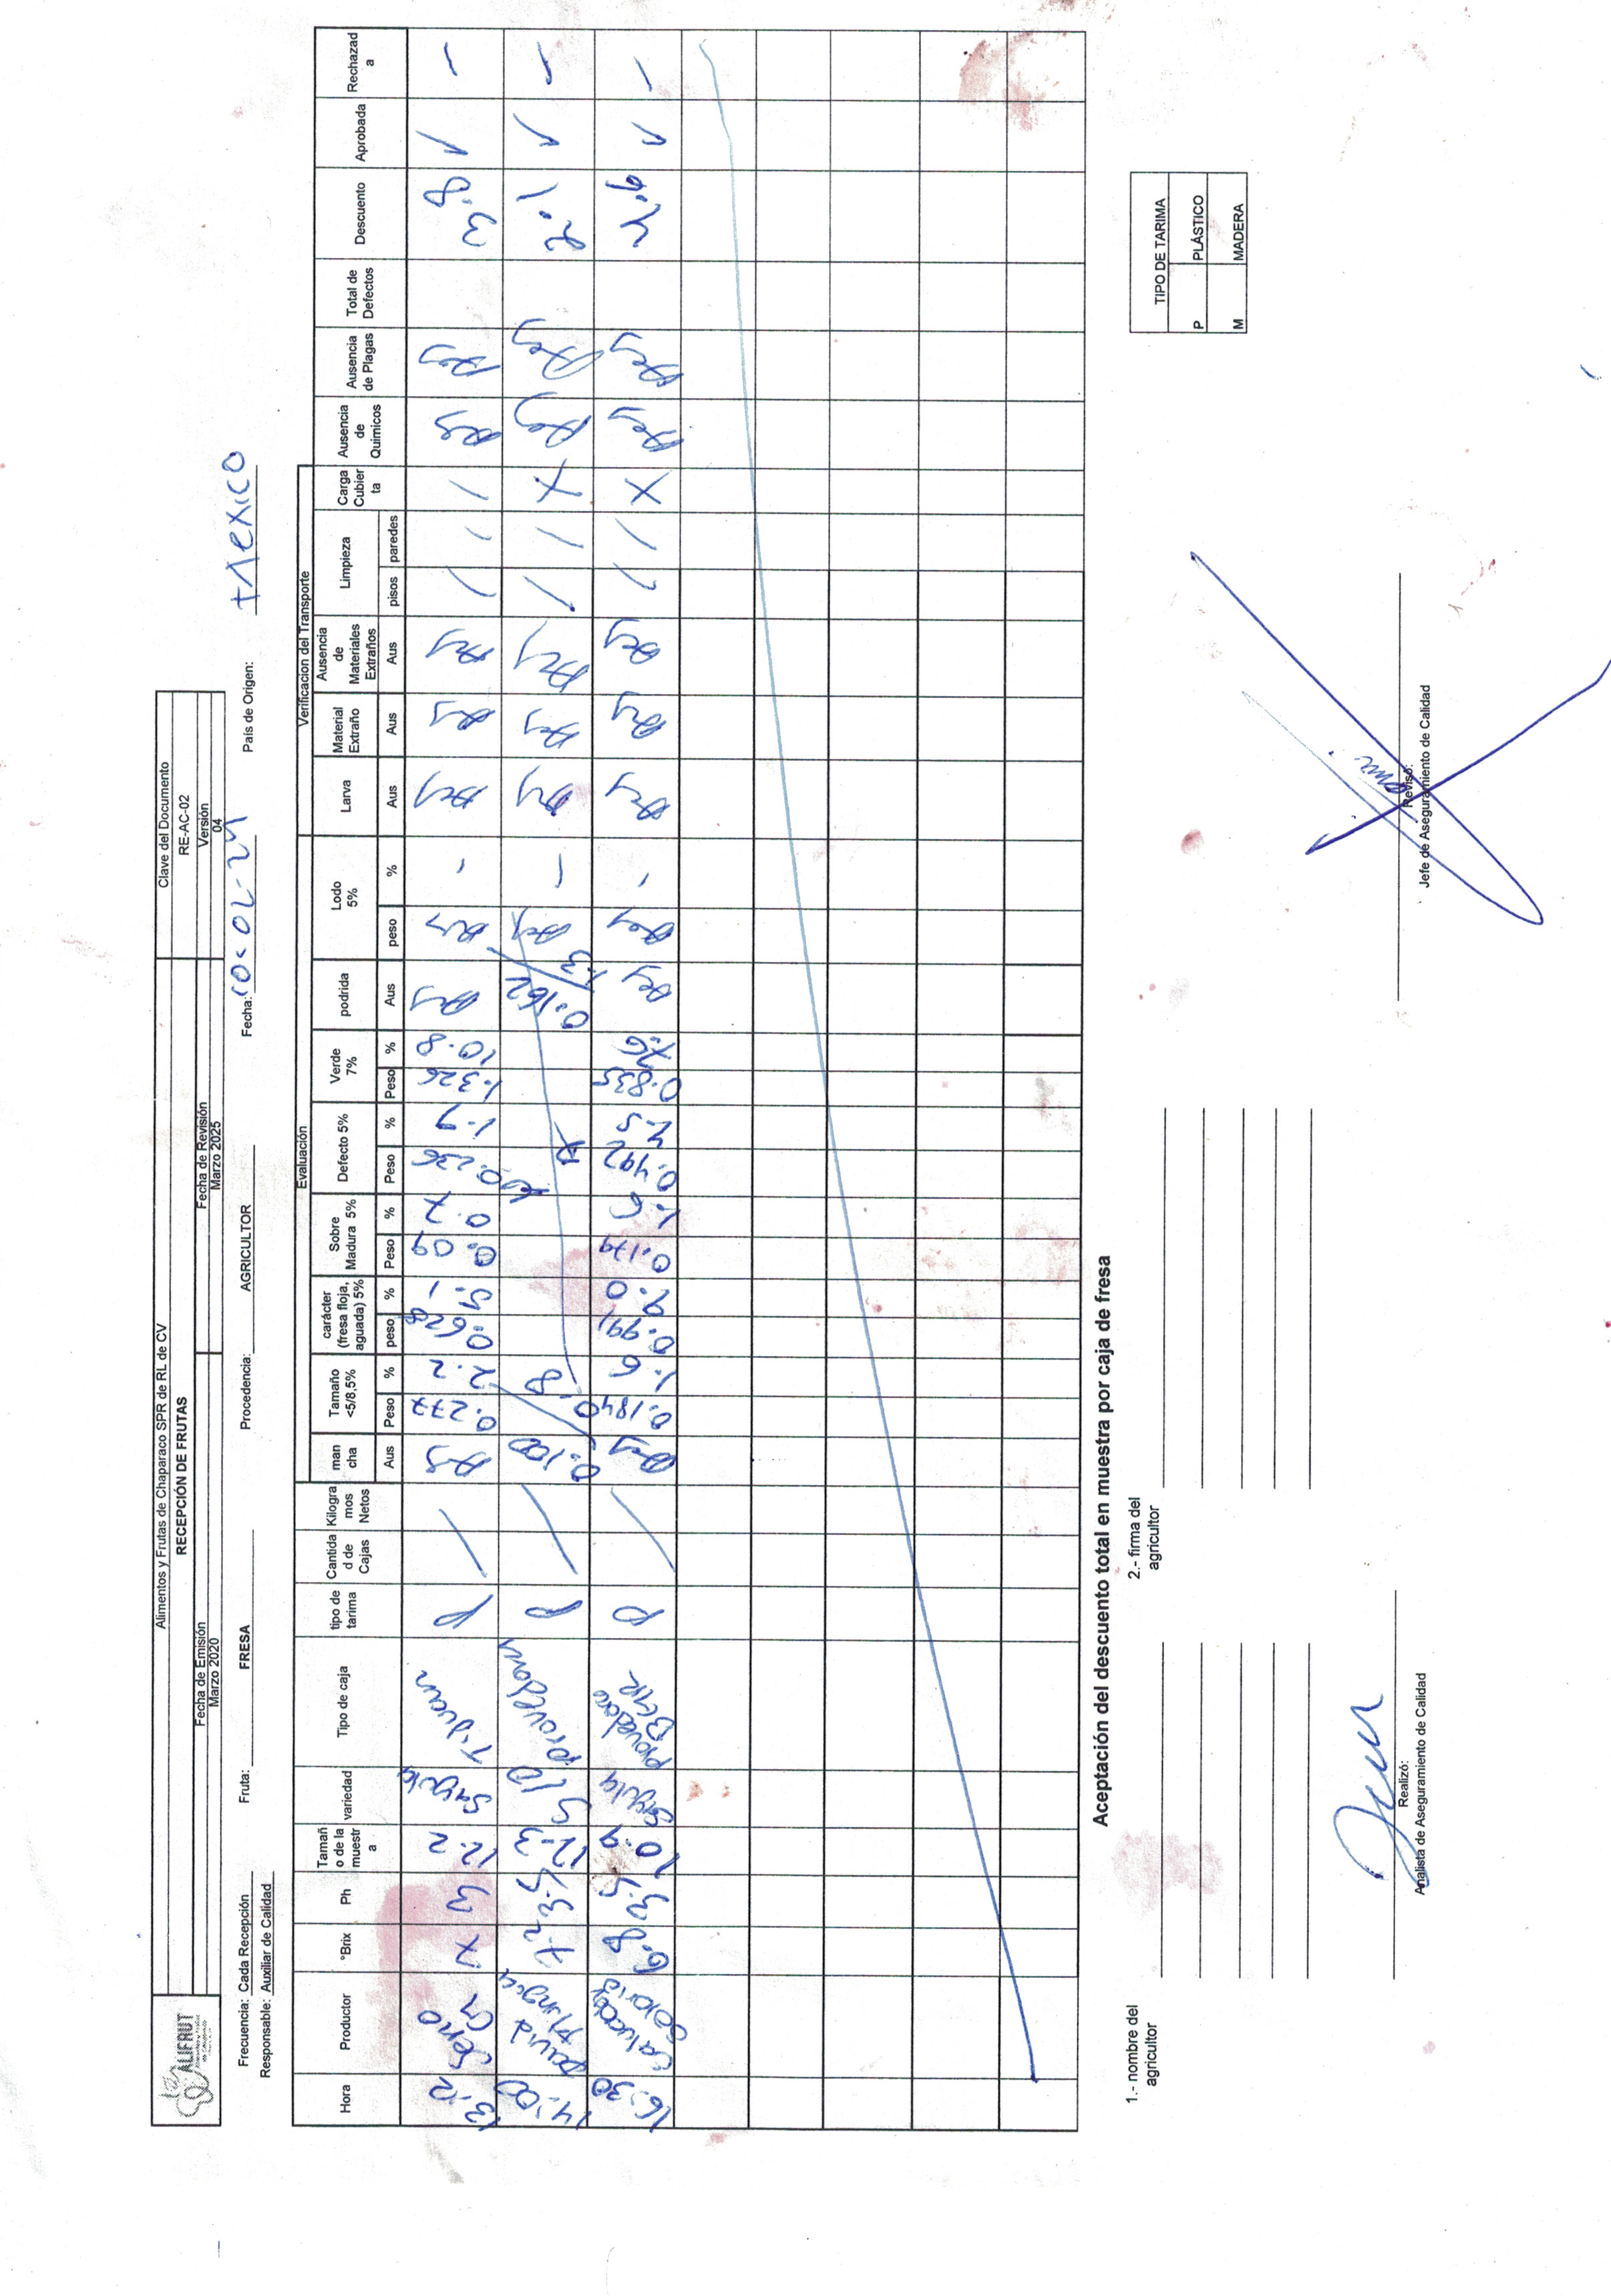 ALIFRUT
Alimentos y Frutas de Chaparaco SPR de RL de CV
RECEPCIÓN DE FRUTAS
Fecha de Emisión
Marzo 2020
Fecha de Revisión
Marzo 2025
Clave del Documento
RE-AC-02
Versión
04
Frecuencia: Cada Recepción
Fruta: FRESA
Procedencia: AGRICULTOR
Fecha: 10-02-24
País de Origen: Mexico
Responsable: Auxiliar de Calidad
Evaluación
Verificacion del Transporte
Hora
Productor
°Brix
Ph
Tamañ
o de la
muestr
a
variedad
Tipo de caja
tipo de
tarima
Cantida
d de
Cajas
Kilogra
mos
Netos
man
cha
Tamaño
<5/8,5%
carácter
(fresa floja,
aguada) 5%
Sobre
Madura 5%
Defecto 5%
Verde
7%
podrida
Lodo
5%
Larva
Material
Extraño
Ausencia
de
Materiales
Extraños
Limpieza
Carga
Cubier
ta
Ausencia
de
Quimicos
Ausencia
de Plagas
Total de
Defectos
Descuento
Aprobada
Rechazad
a
Aus Peso % peso % Peso % Peso % Peso % Aus peso % Aus Aus Aus pisos paredes
13:12 7 3 12.2 Sayula Tijuan P Aus 0.277 2.2 0.628 5.1 0.09 0.7 0.236 1.9 1.326 10.8 Aus Aus - Aus Aus Aus / / / Aus Aus 3.8 ✓ -
14:00 David Mungia 7.2 3.5 12.3 S/D Provedora P 0.100 0.8 0.162 1.3 Aus - Aus Aus Aus / / X Aus Aus 2.1 ✓ -
16:30 Salvador Solorio 6.8 3.5 10.9 Sayula Provedora P Aus 0.184 1.6 0.991 9.0 0.179 1.6 0.492 4.5 0.835 7.6 Aus Aus - Aus Aus Aus / / X Aus Aus 4.6 ✓ -
Aceptación del descuento total en muestra por caja de fresa
1.- nombre del
agricultor
2.- firma del
agricultor
TIPO DE TARIMA
P PLÁSTICO
M MADERA
Realizó:
Analista de Aseguramiento de Calidad
Revisó:
Jefe de Aseguramiento de Calidad